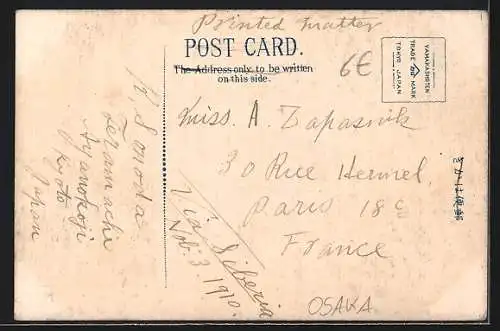 Printed matter
POST CARD.
The Address only to be written
on this side.
6€
YAMAKASHOTEN
TRADE MARK
TOKYO JAPAN
Miss. A. Zapasnik
30 Rue Hermel,
Paris 18e
France
Via Siberia
Feb. 3. 1910.
K. Sonoda
Teramachi
Ayanokoji
Kyoto
Japan
OSAKA